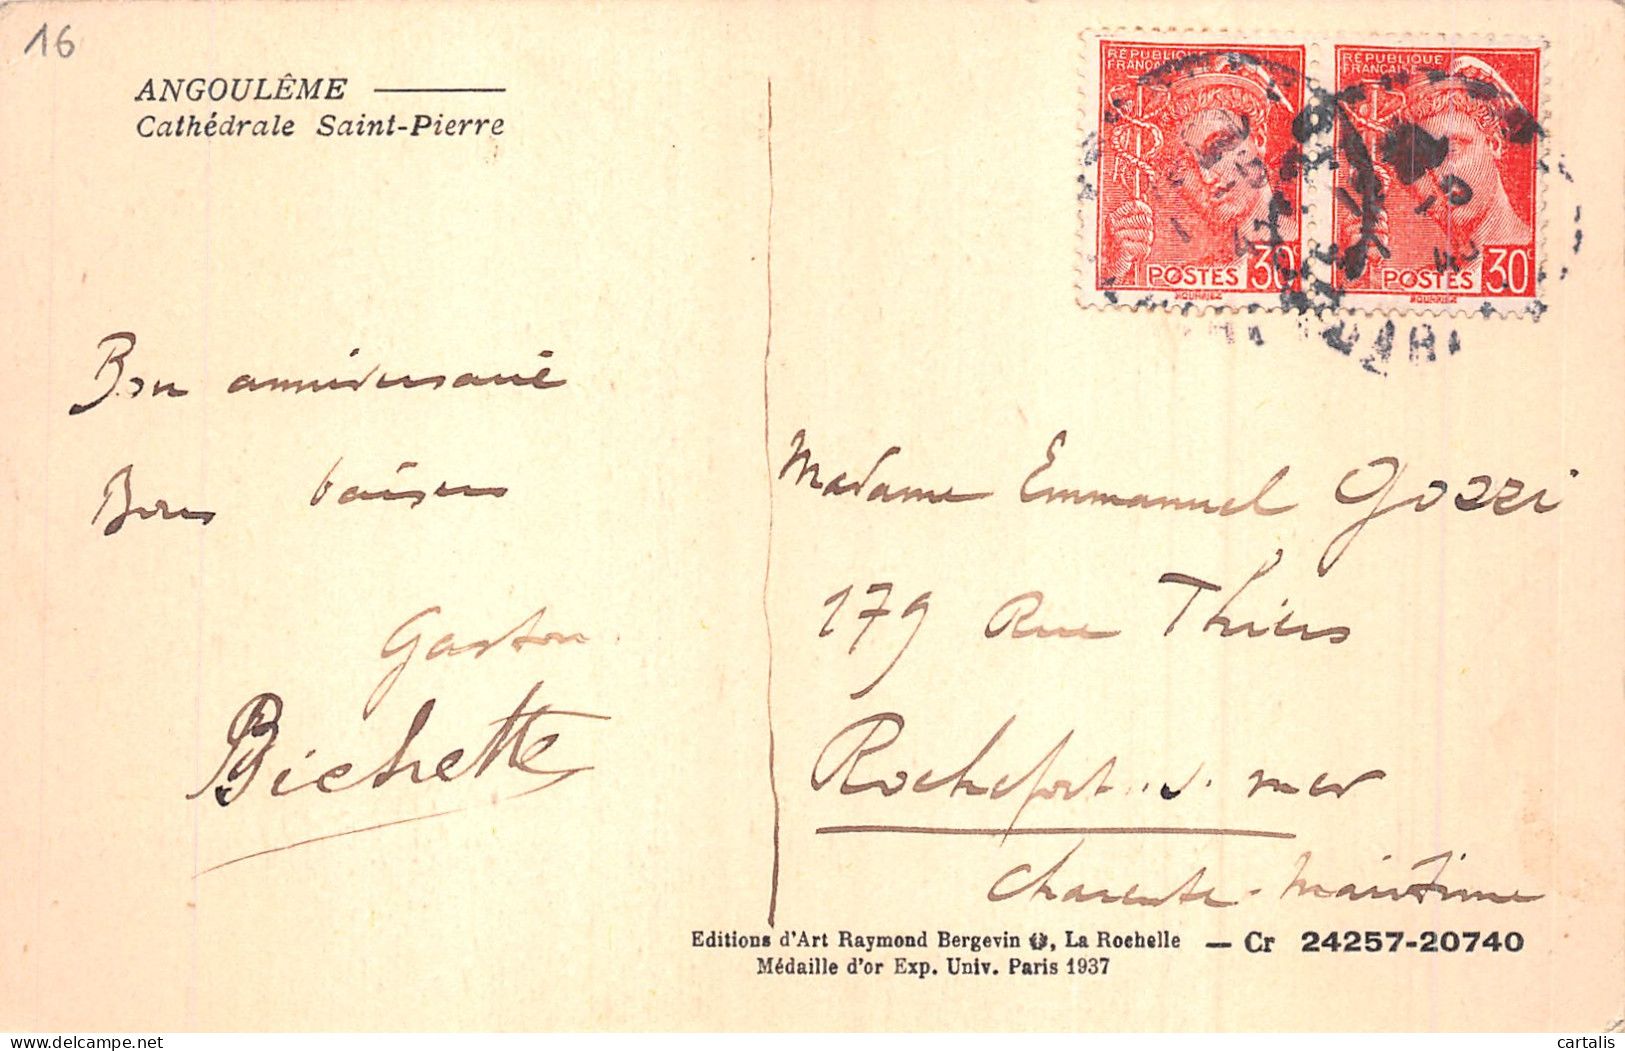 16
ANGOULÊME
Cathédrale Saint-Pierre
RÉPUBLIQUE
FRANÇAISE
POSTES 30c
RÉPUBLIQUE
FRANÇAISE
POSTES 30c
Bon anniversaire
Bons baisers
Gaston.
Bichette
Madame Emmanuel Gozzi
179 Rue Thiers
Rochefort.s.mer
Charente-Maritime
Editions d'Art Raymond Bergevin, La Rochelle — Cr 24257-20740
Médaille d'or Exp. Univ. Paris 1937
cartalis
delcampe.net